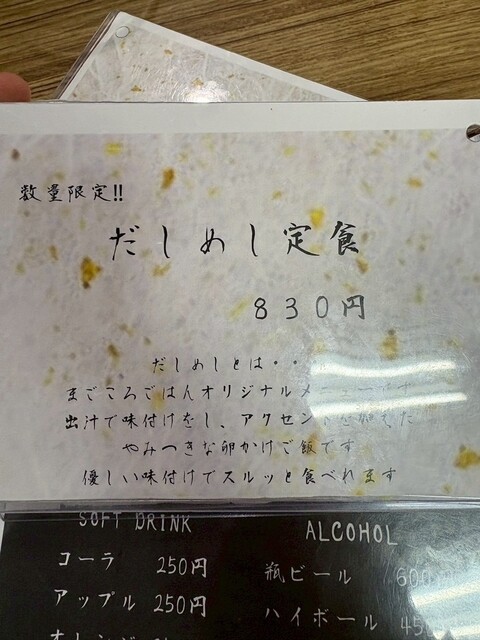 数量限定!!
だしめし定食
830円
だしめしとは・・
まごころごはんオリジナルメニューです
出汁で味付けをし、アクセントを加えた
やみつきな卵かけご飯です
優しい味付けでスルッと食べれます
SOFT DRINK
コーラ 250円
アップル 250円
ALCOHOL
瓶ビール 600
ハイボール 45